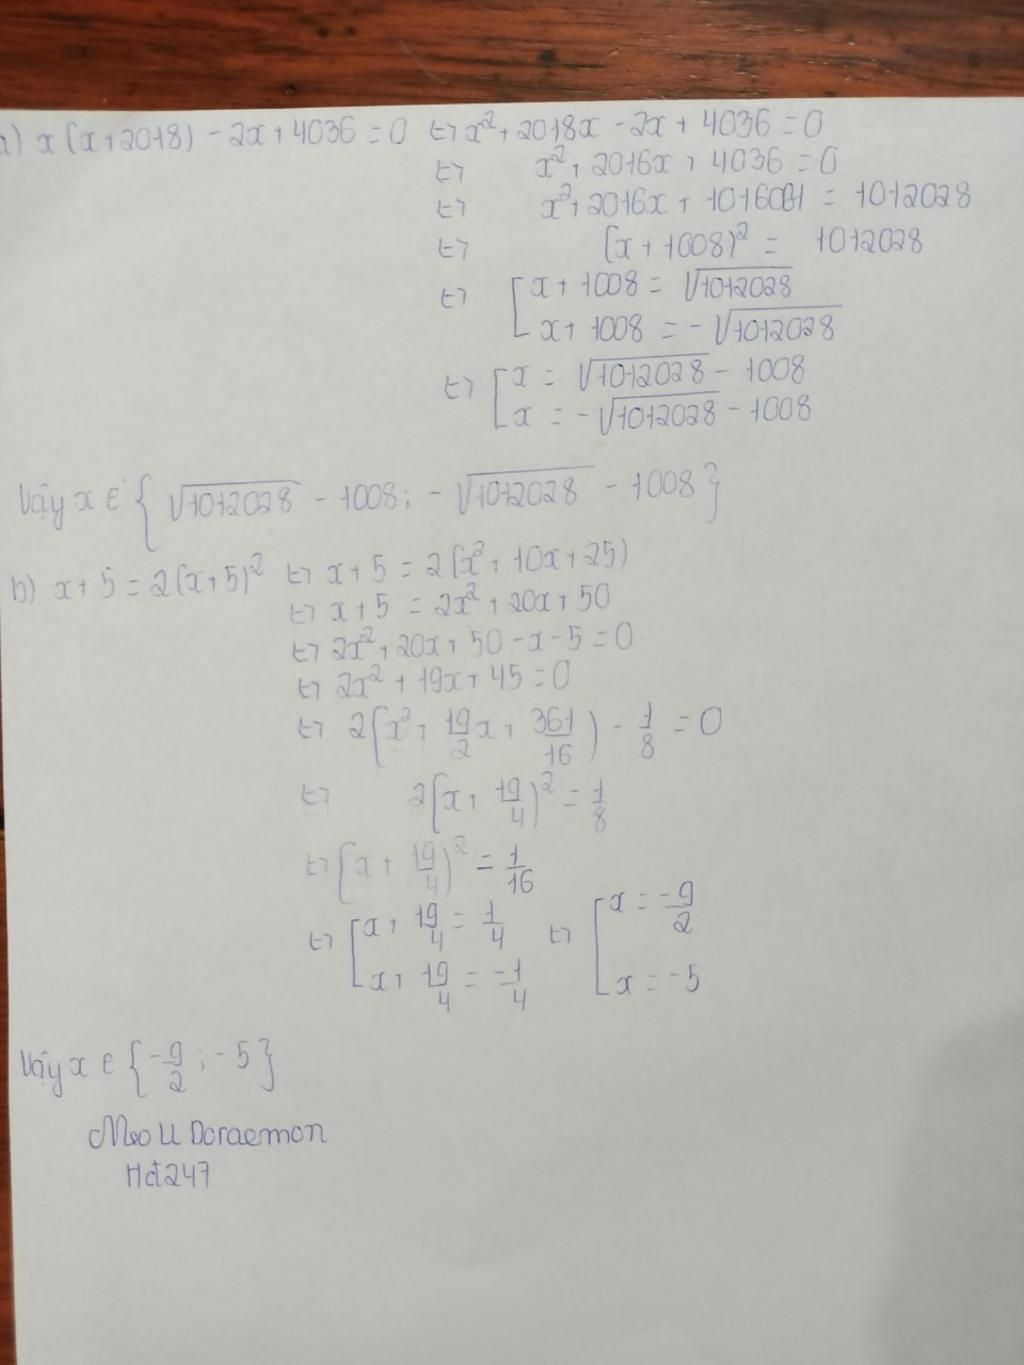 a) x(x+2018) - 2x + 4036 = 0 ⇔ x² + 2018x - 2x + 4036 = 0
⇔ x² + 2016x + 4036 = 0
⇔ x² + 2016x + 1016064 = 1012028
⇔ (x + 1008)² = 1012028
⇔ [ x + 1008 = √1012028
x + 1008 = -√1012028
⇔ [ x = √1012028 - 1008
x = -√1012028 - 1008
Vậy x ∈ { √1012028 - 1008; -√1012028 - 1008 }
b) x + 5 = 2(x+5)² ⇔ x + 5 = 2(x² + 10x + 25)
⇔ x + 5 = 2x² + 20x + 50
⇔ 2x² + 20x + 50 - x - 5 = 0
⇔ 2x² + 19x + 45 = 0
⇔ 2(x² + 19/2 x + 361/16) - 1/8 = 0
⇔ 2(x + 19/4)² = 1/8
⇔ (x + 19/4)² = 1/16
⇔ [ x + 19/4 = 1/4 ⇔ [ x = -9/2
x + 19/4 = -1/4 x = -5
Vậy x ∈ { -9/2 ; -5 }
Mèo U Doraemon
Hd247